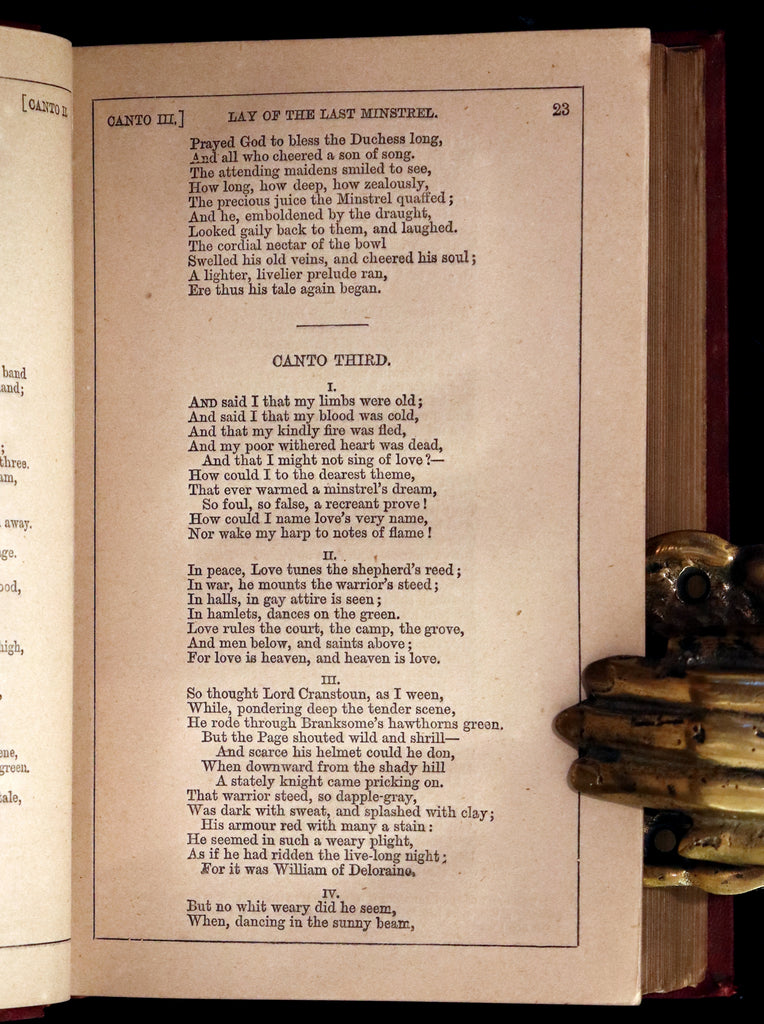 [CANTO II
band
and;
;
three.
am,
away.
ge.
ood,
high,
,
ene,
green.
tale,
CANTO III.] LAY OF THE LAST MINSTREL. 23
Prayed God to bless the Duchess long,
And all who cheered a son of song.
The attending maidens smiled to see,
How long, how deep, how zealously,
The precious juice the Minstrel quaffed;
And he, emboldened by the draught,
Looked gaily back to them, and laughed.
The cordial nectar of the bowl
Swelled his old veins, and cheered his soul;
A lighter, livelier prelude ran,
Ere thus his tale again began.
CANTO THIRD.
I.
AND said I that my limbs were old;
And said I that my blood was cold,
And that my kindly fire was fled,
And my poor withered heart was dead,
And that I might not sing of love?—
How could I to the dearest theme,
That ever warmed a minstrel's dream,
So foul, so false, a recreant prove!
How could I name love's very name,
Nor wake my harp to notes of flame!
II.
In peace, Love tunes the shepherd's reed;
In war, he mounts the warrior's steed;
In halls, in gay attire is seen;
In hamlets, dances on the green.
Love rules the court, the camp, the grove,
And men below, and saints above;
For love is heaven, and heaven is love.
III.
So thought Lord Cranstoun, as I ween,
While, pondering deep the tender scene,
He rode through Branksome's hawthorns green.
But the Page shouted wild and shrill—
And scarce his helmet could he don,
When downward from the shady hill
A stately knight came pricking on.
That warrior steed, so dapple-gray,
Was dark with sweat, and splashed with clay;
His armour red with many a stain:
He seemed in such a weary plight,
As if he had ridden the live-long night;
For it was William of Deloraine.
IV.
But no whit weary did he seem,
When, dancing in the sunny beam,